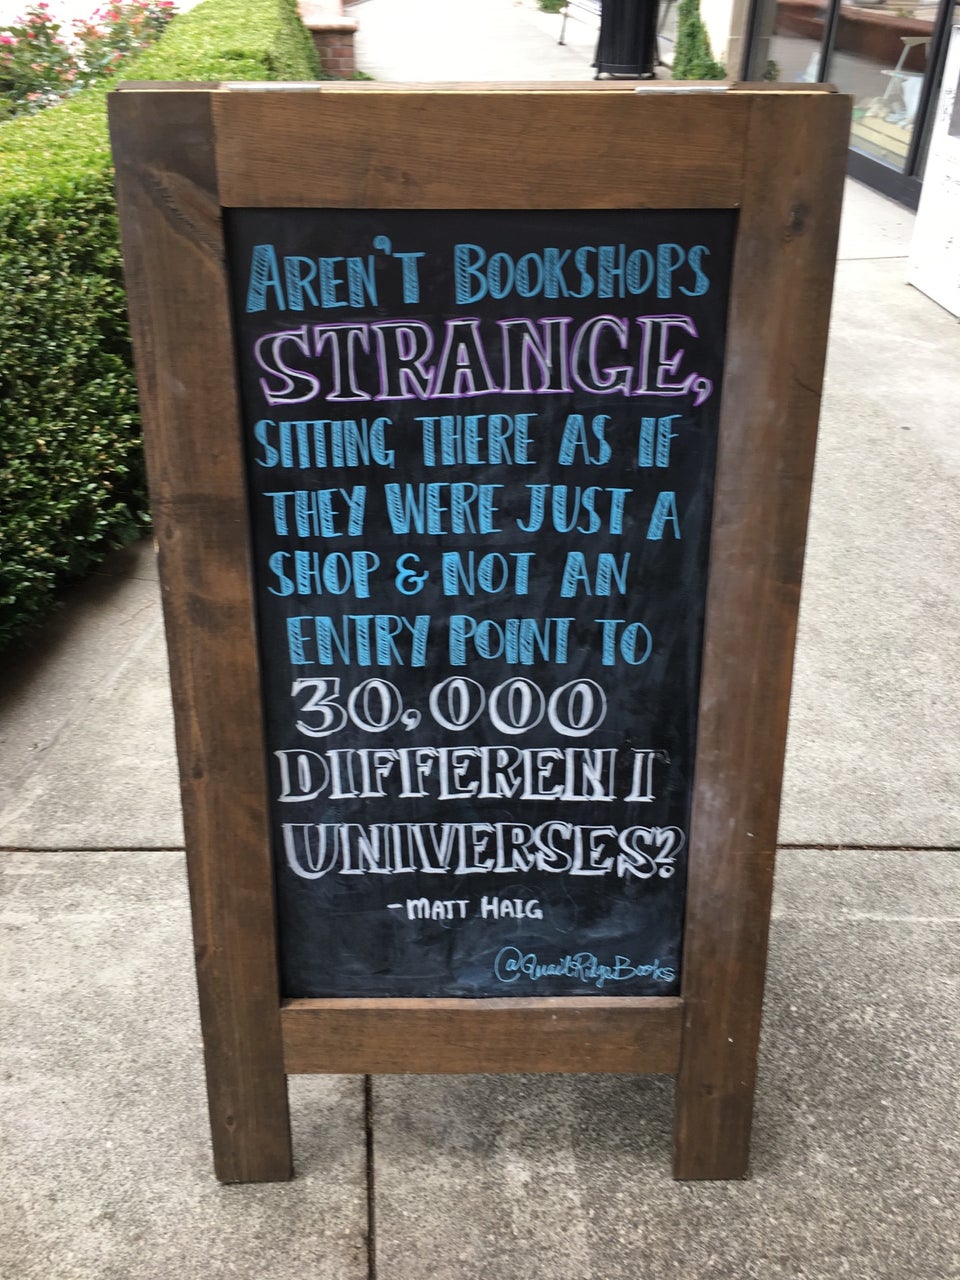 AREN'T BOOKSHOPS
STRANGE,
SITTING THERE AS IF
THEY WERE JUST A
SHOP & NOT AN
ENTRY POINT TO
30,000
DIFFERENT
UNIVERSES?
-MATT HAIG
@QuailRidgeBooks